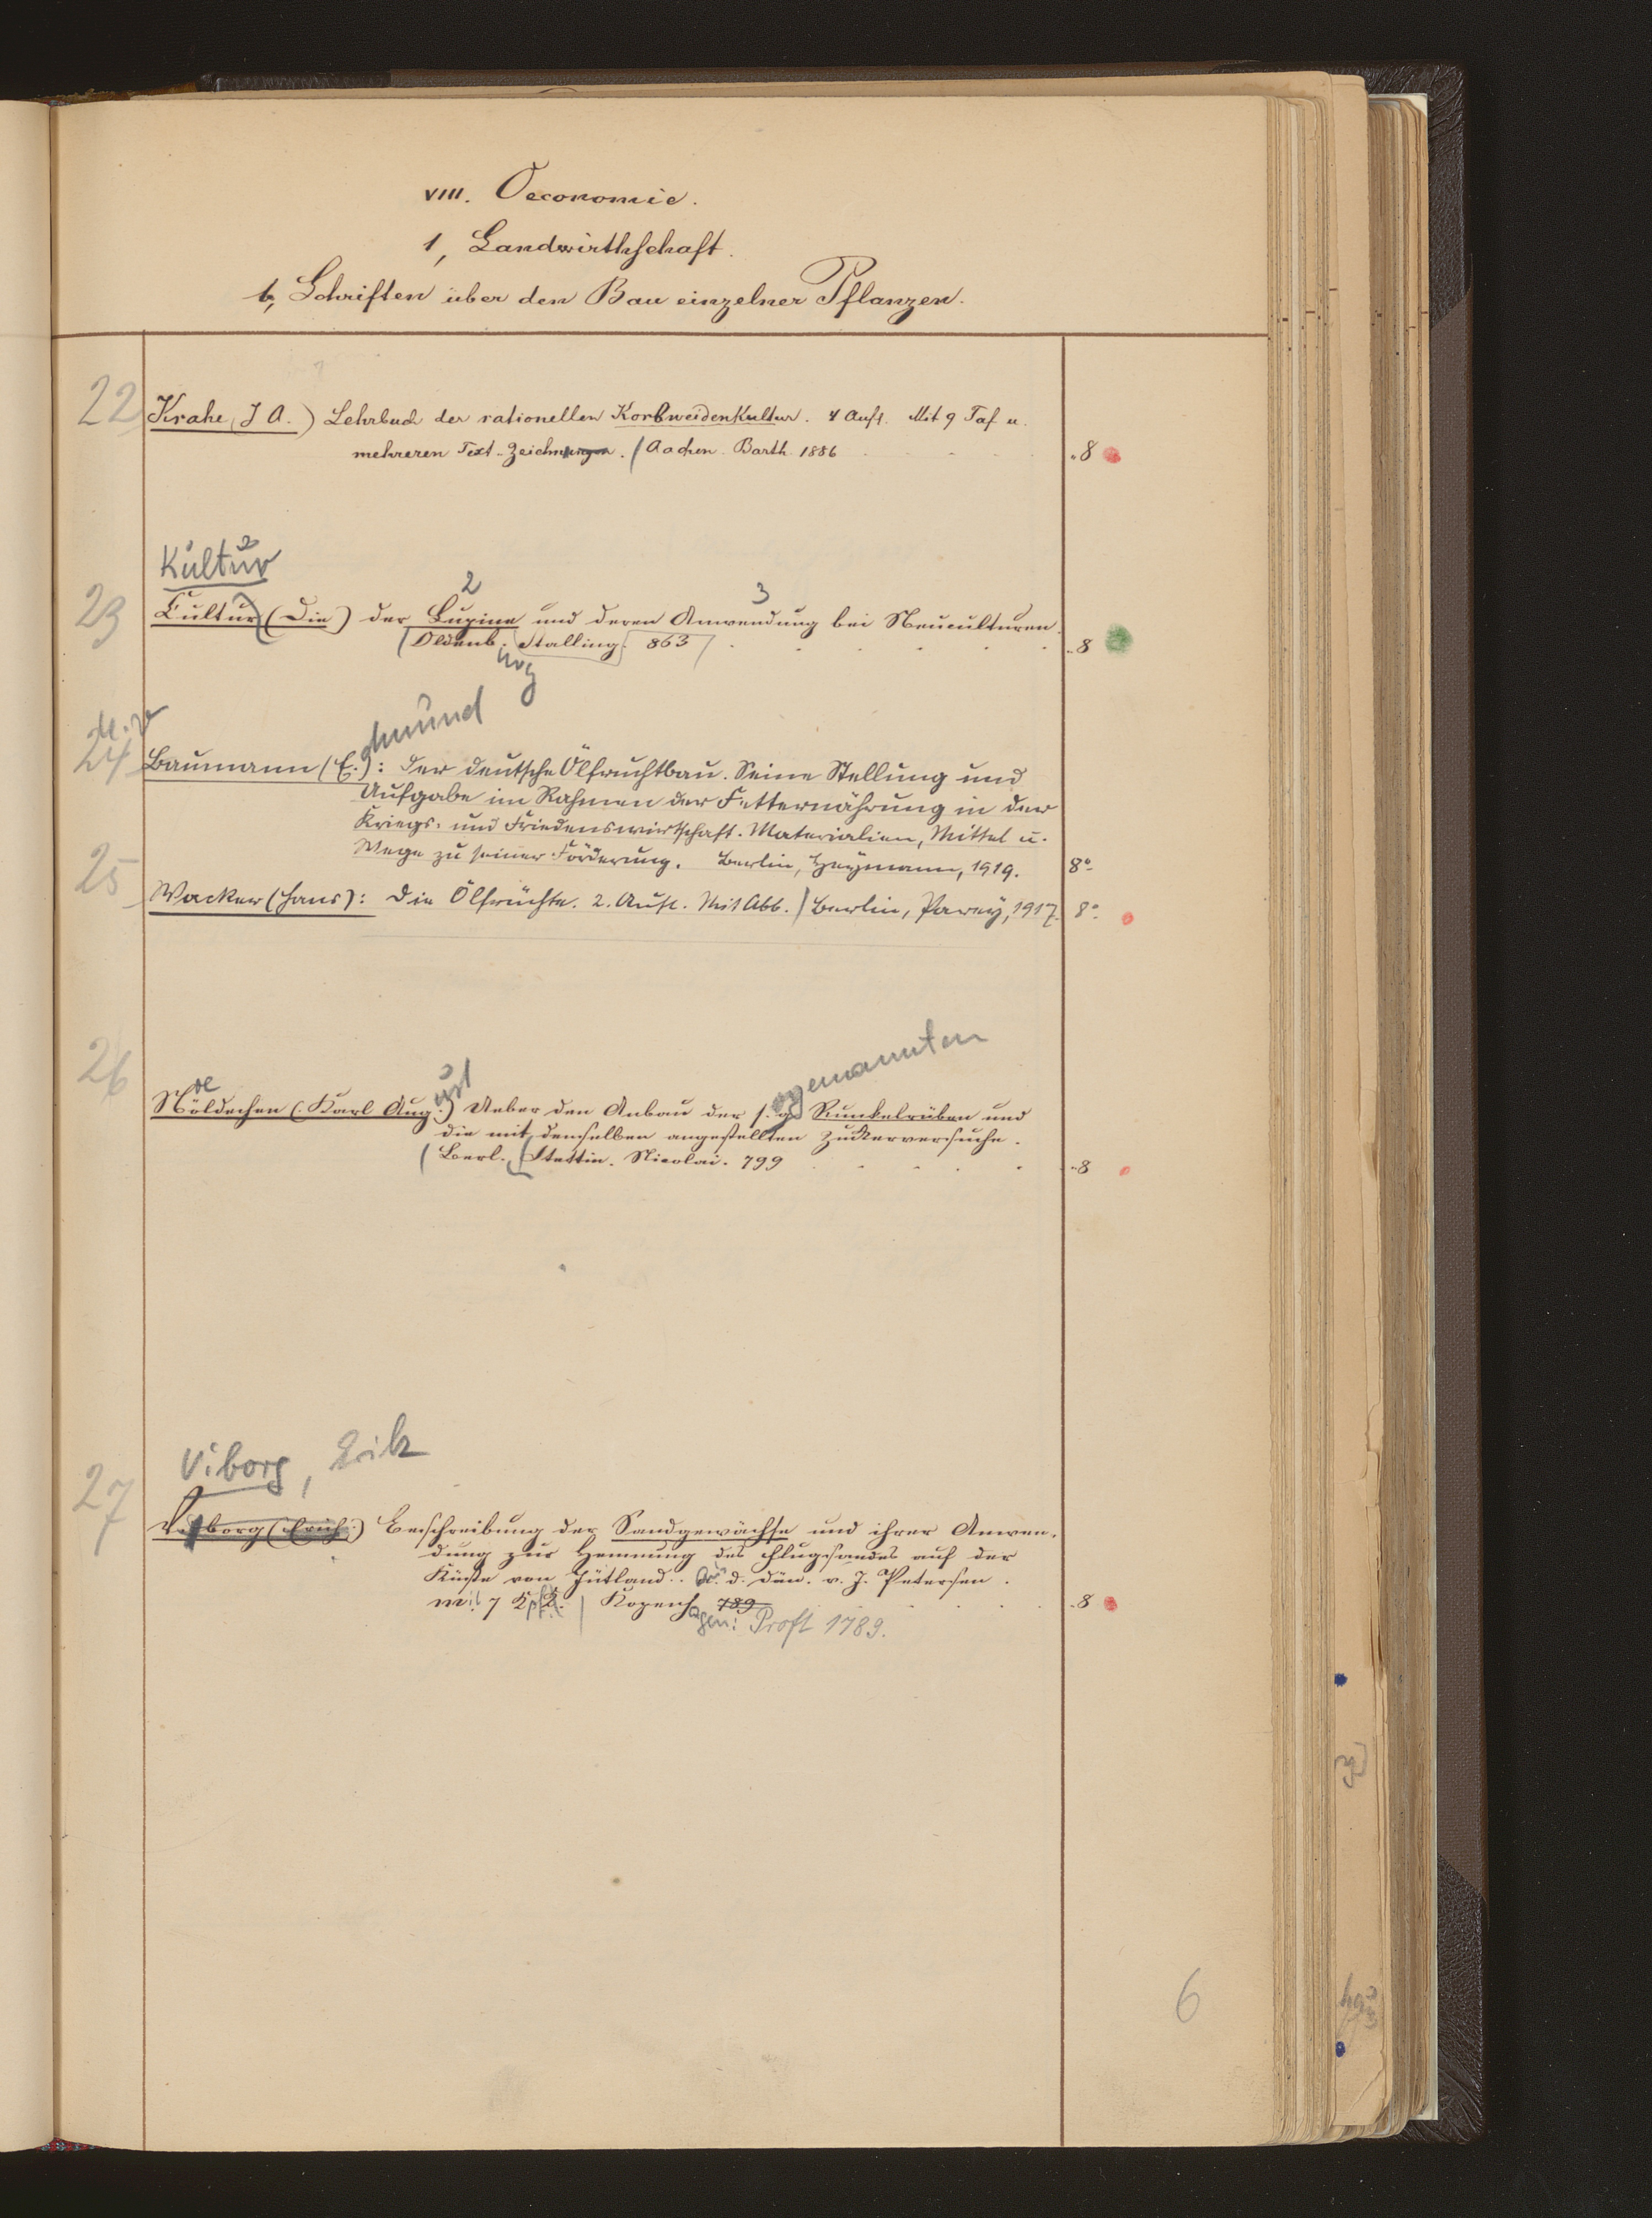 VIII. Oeconomie.
1, Landwirthschaft.
b, Schriften über den Bau einzelner Pflanzen.
22 Krahe, J A.) Lehrbuch der rationellen Korbweidenkultur. 4 Aufl. Mit 9 Taf u.
mehreren Text-Zeichnungen. / Aachen. Barth. 1886 8
Kultur
2 3
23 Cultur (Die) der Lupine und deren Anwendung bei Neuculturen.
(Oldenb. Stalling. 863 8
burg
dmund
24 Baumann (E.): Der deutsche Ölfruchtbau. Seine Stellung und
Aufgabe im Rahmen der Fetternährung in der
Kriegs- und Friedenswirtschaft. Materialien, Mittel u.
Wege zu seiner Förderung. Berlin, Heymann, 1919. 8°
25 Wacker (Hans): Die Ölfrüchte. 2. Aufl. Mit Abb. / Berlin, Parey, 1917. 8°
ogenannten
oe ust
26 Nöldechen (Karl Aug.) Ueber den Anbau der s. g. Runkelrüben und
die mit denselben angestellten Zuckerversuche.
(Berl. Stettin. Nicolai. 799 8
Viborg, Erik
27 Viborg (Erich) Beschreibung der Sandgewächse und ihrer Anwen-
dung zur Hemmung des Flugsandes auf der
Küste von Jütland. Aus d. Dän. v. J. Petersen.
mit 7 Kpf. / Kopenh 789 8
agen: Proft 1789.
6